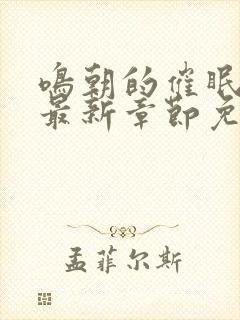 鸣朝的催眠
最新章節免
孟菲尔斯